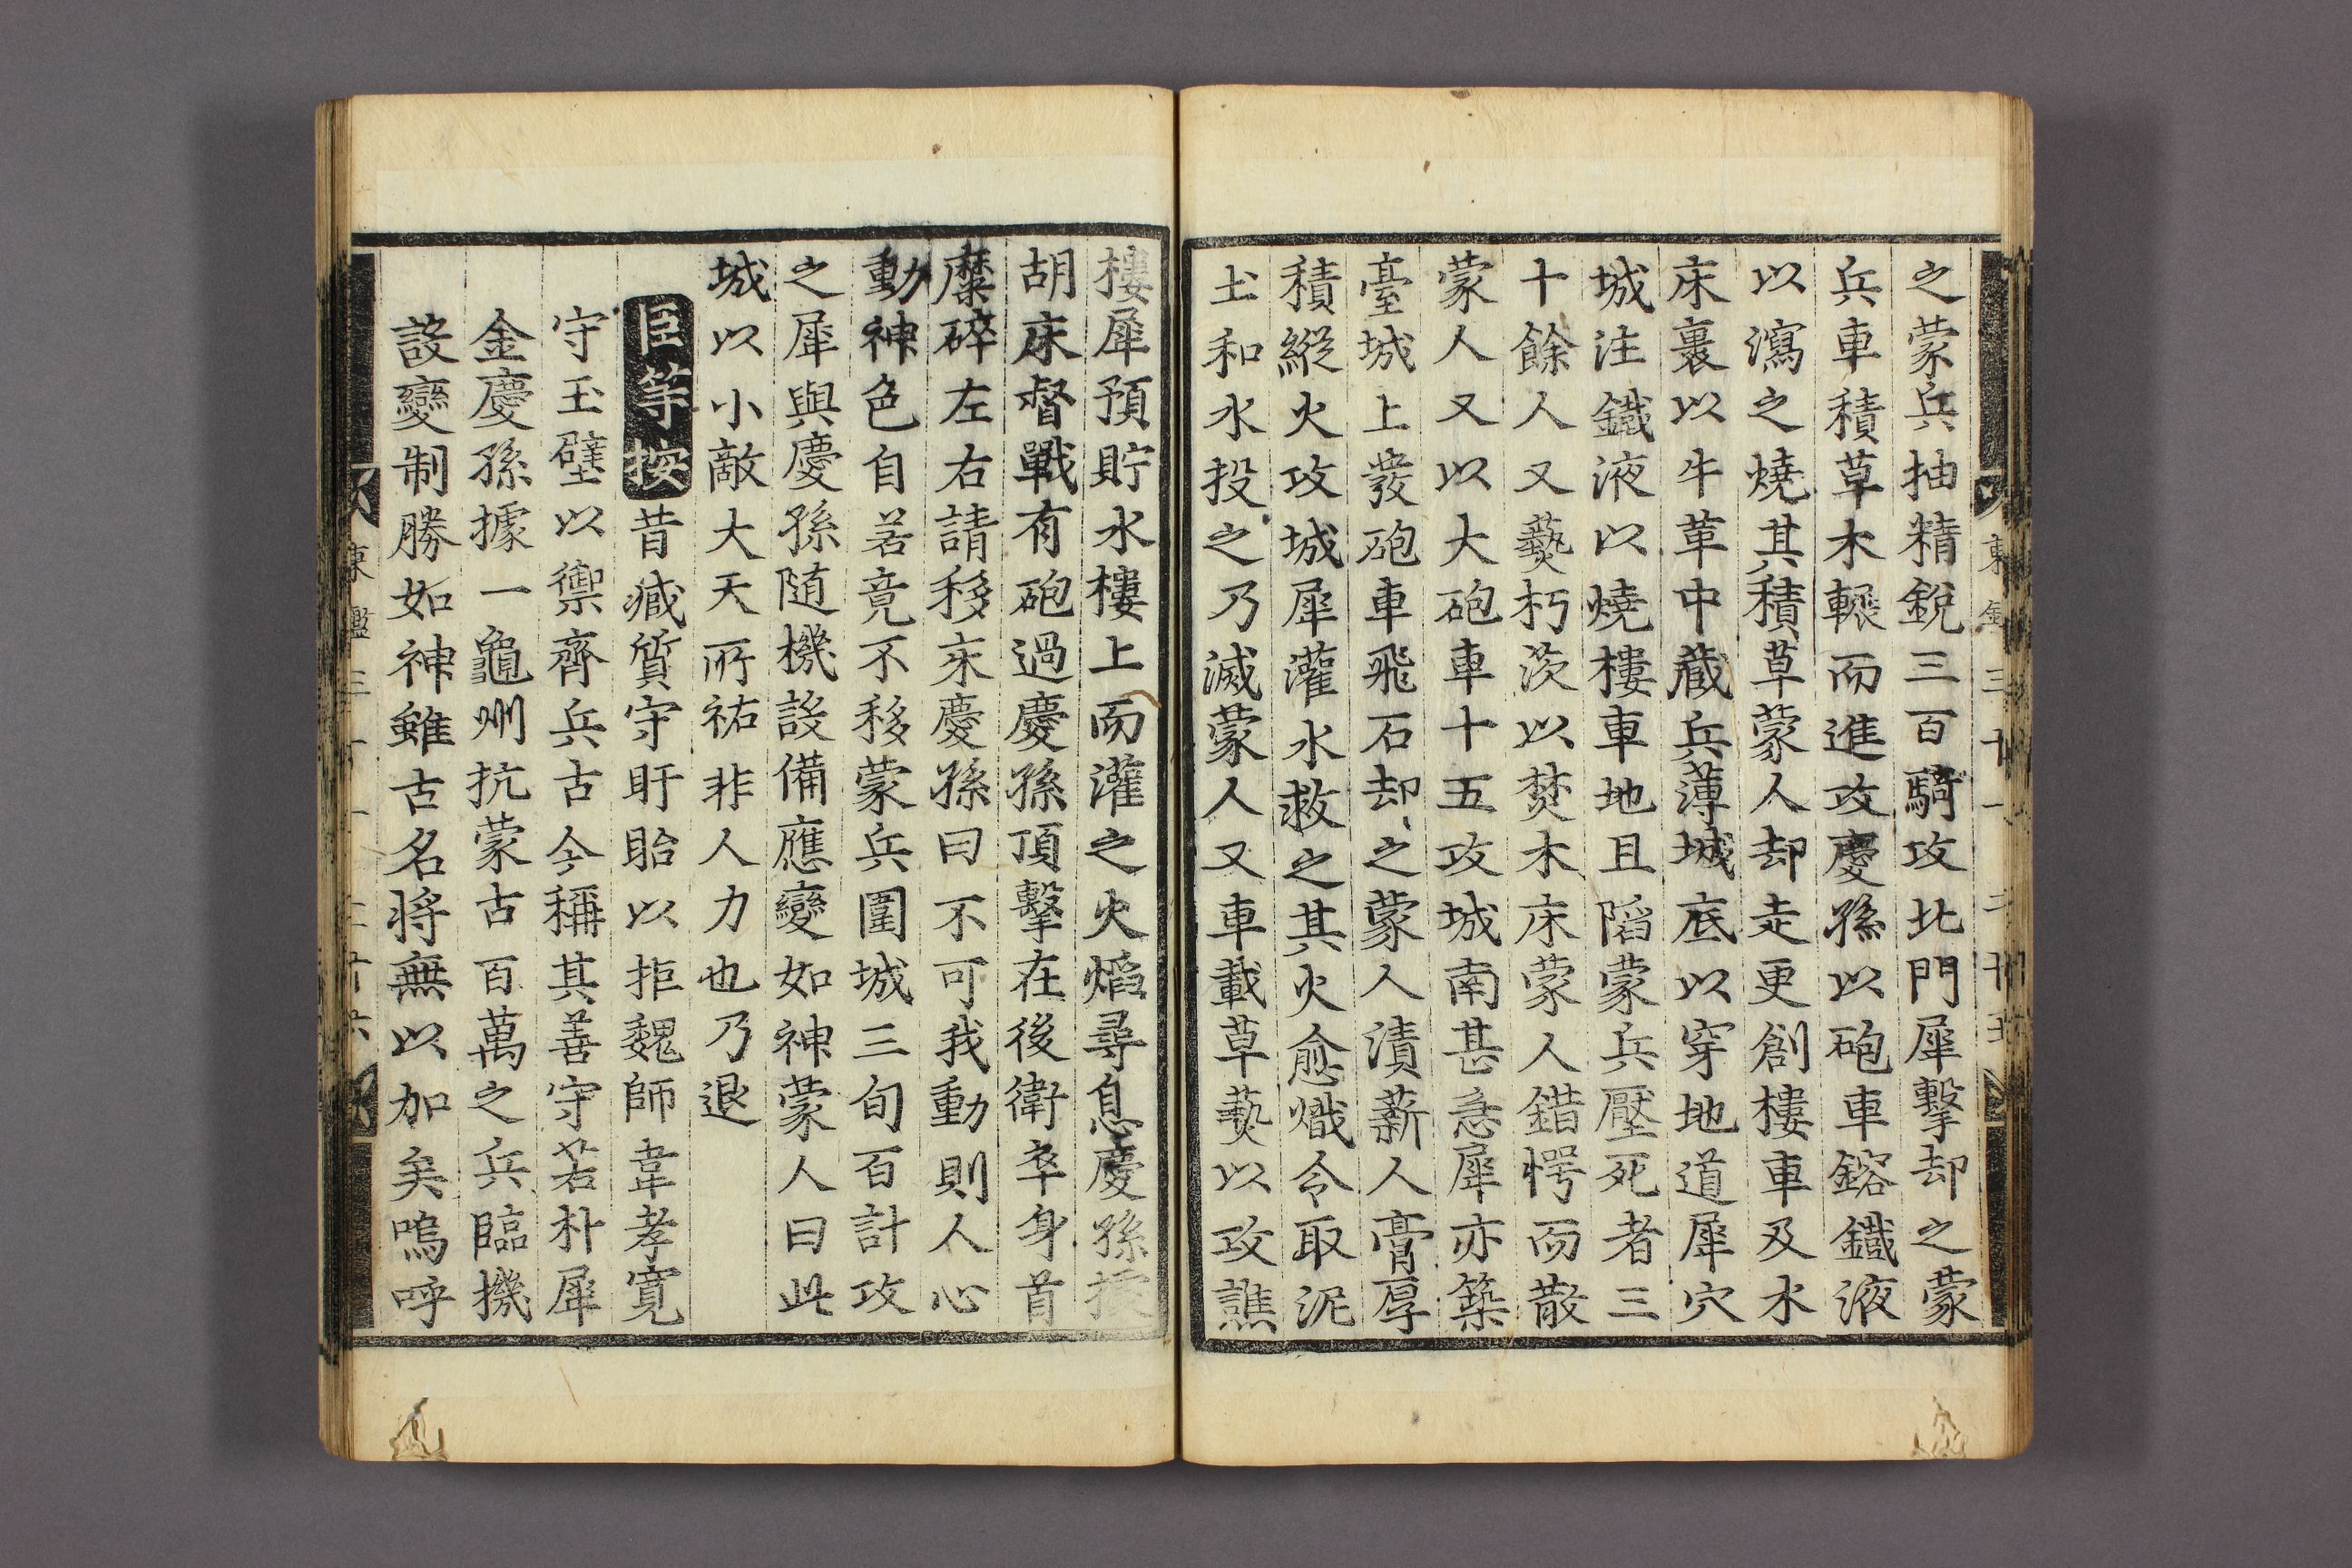 之蒙兵抽精銳三百騎攻北門犀擊却之蒙
兵車積草木輾而進攻慶孫以砲車鎔鐵液
以瀉之燒其積草蒙人却走更創樓車及木
床裹以牛革中藏兵薄城底以穿地道犀穴
城注鐵液以燒樓車地且陷蒙兵壓死者三
十餘人又爇朽茨以焚木床蒙人錯愕而散
蒙人又以大砲車十五攻城南甚急犀亦築
臺城上發砲車飛石却之蒙人漬薪人膏厚
積縱火攻城犀灌水救之其火愈熾令取泥
土和水投之乃滅蒙人又車載草爇以攻譙
樓犀預貯水樓上而灌之火焰尋息慶孫據
胡床督戰有砲過慶孫頂擊在後衛卒身首
糜碎左右請移床慶孫曰不可我動則人心
動神色自若竟不移蒙兵圍城三旬百計攻
之犀與慶孫随機設備應變如神蒙人曰此
城以小敵大天所祐非人力也乃退
臣等按昔臧質守盱眙以拒魏師韋孝寬
守玉壁以禦齊兵古今稱其善守若朴犀
金慶孫據一龜州抗蒙古百萬之兵臨機
設變制勝如神雖古名將無以加矣嗚呼